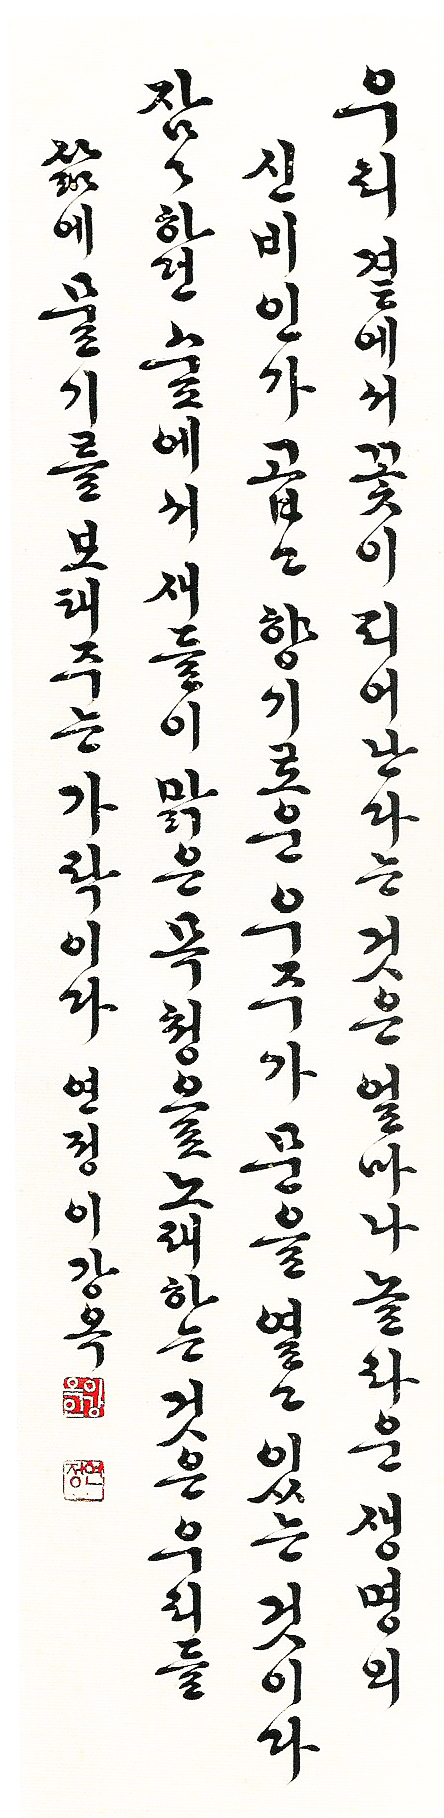 우리 곁에서 꽃이 피어난다는 것은 얼마나 놀라운 생명의
신비인가 곱고 향기로운 우주가 문을 열고 있는 것이다
잠잠하던 숲에서 새들이 맑은 목청으로 노래하는 것은 우리들
삶에 물기를 보태주는 가락이다 연정 이강옥
이강옥인
연정